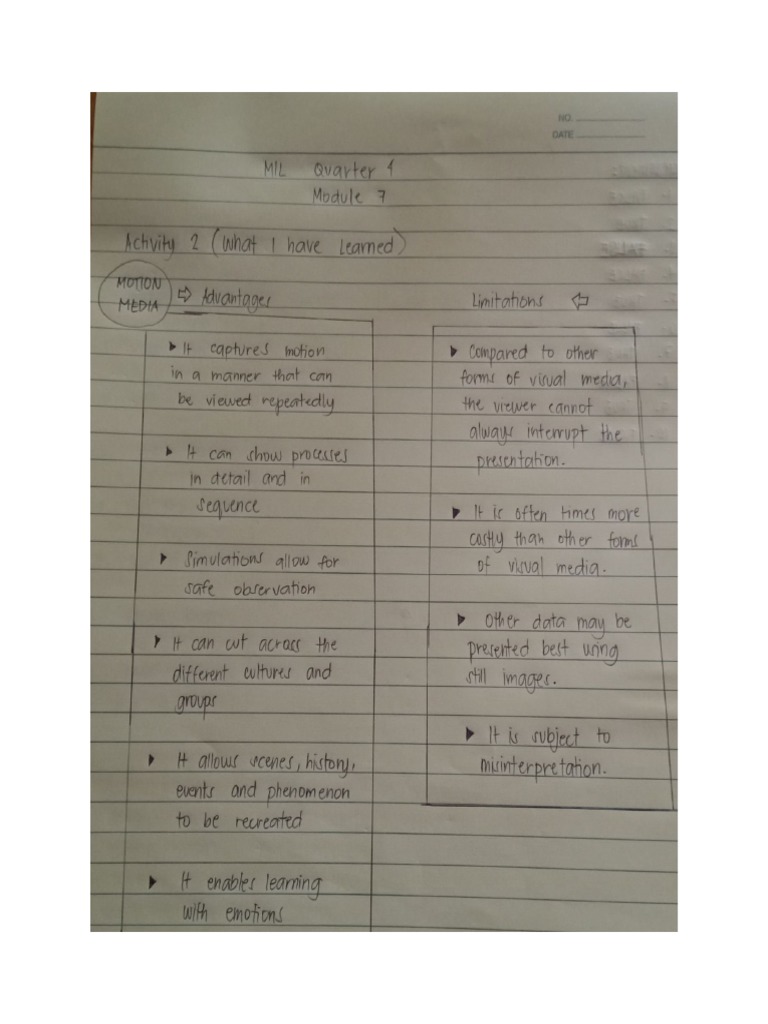 NO.
DATE
MIL Quarter 1
Module 7
Activity 2 (What I have Learned)
MOTION
MEDIA
⇨ Advantages
‣ It captures motion
in a manner that can
be viewed repeatedly
‣ It can show processes
in detail and in
sequence
‣ Simulations allow for
safe observation
‣ It can cut across the
different cultures and
groups
‣ It allows scenes, history,
events and phenomenon
to be recreated
‣ It enables learning
with emotions
Limitations ⇦
‣ Compared to other
forms of visual media,
the viewer cannot
always interrupt the
presentation.
‣ It is often times more
costly than other forms
of visual media.
‣ Other data may be
presented best using
still images.
‣ It is subject to
misinterpretation.